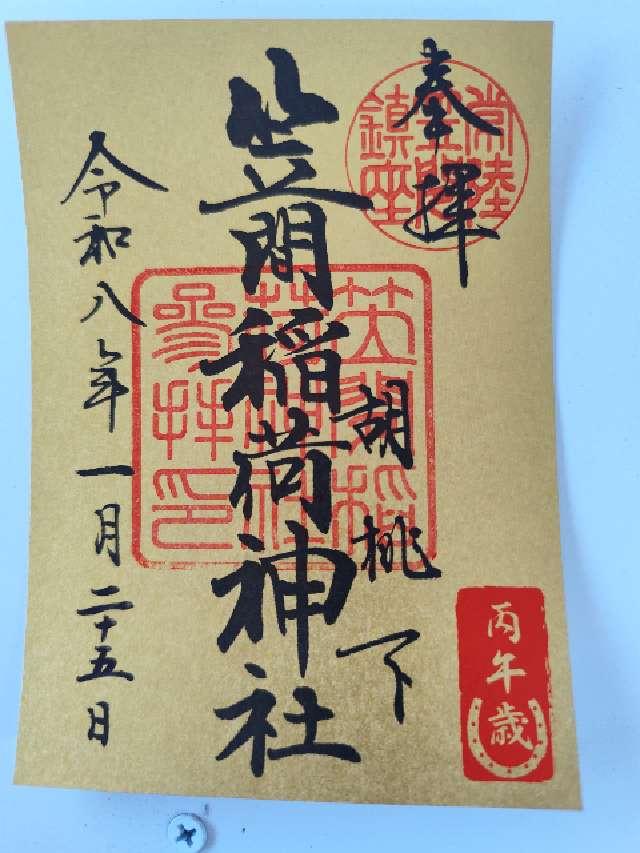 奉拝
常陸
笠間
鎮座
胡桃下
笠間稲荷神社
笠間稲
荷神社
参拝印
令和八年一月二十五日
丙午歳